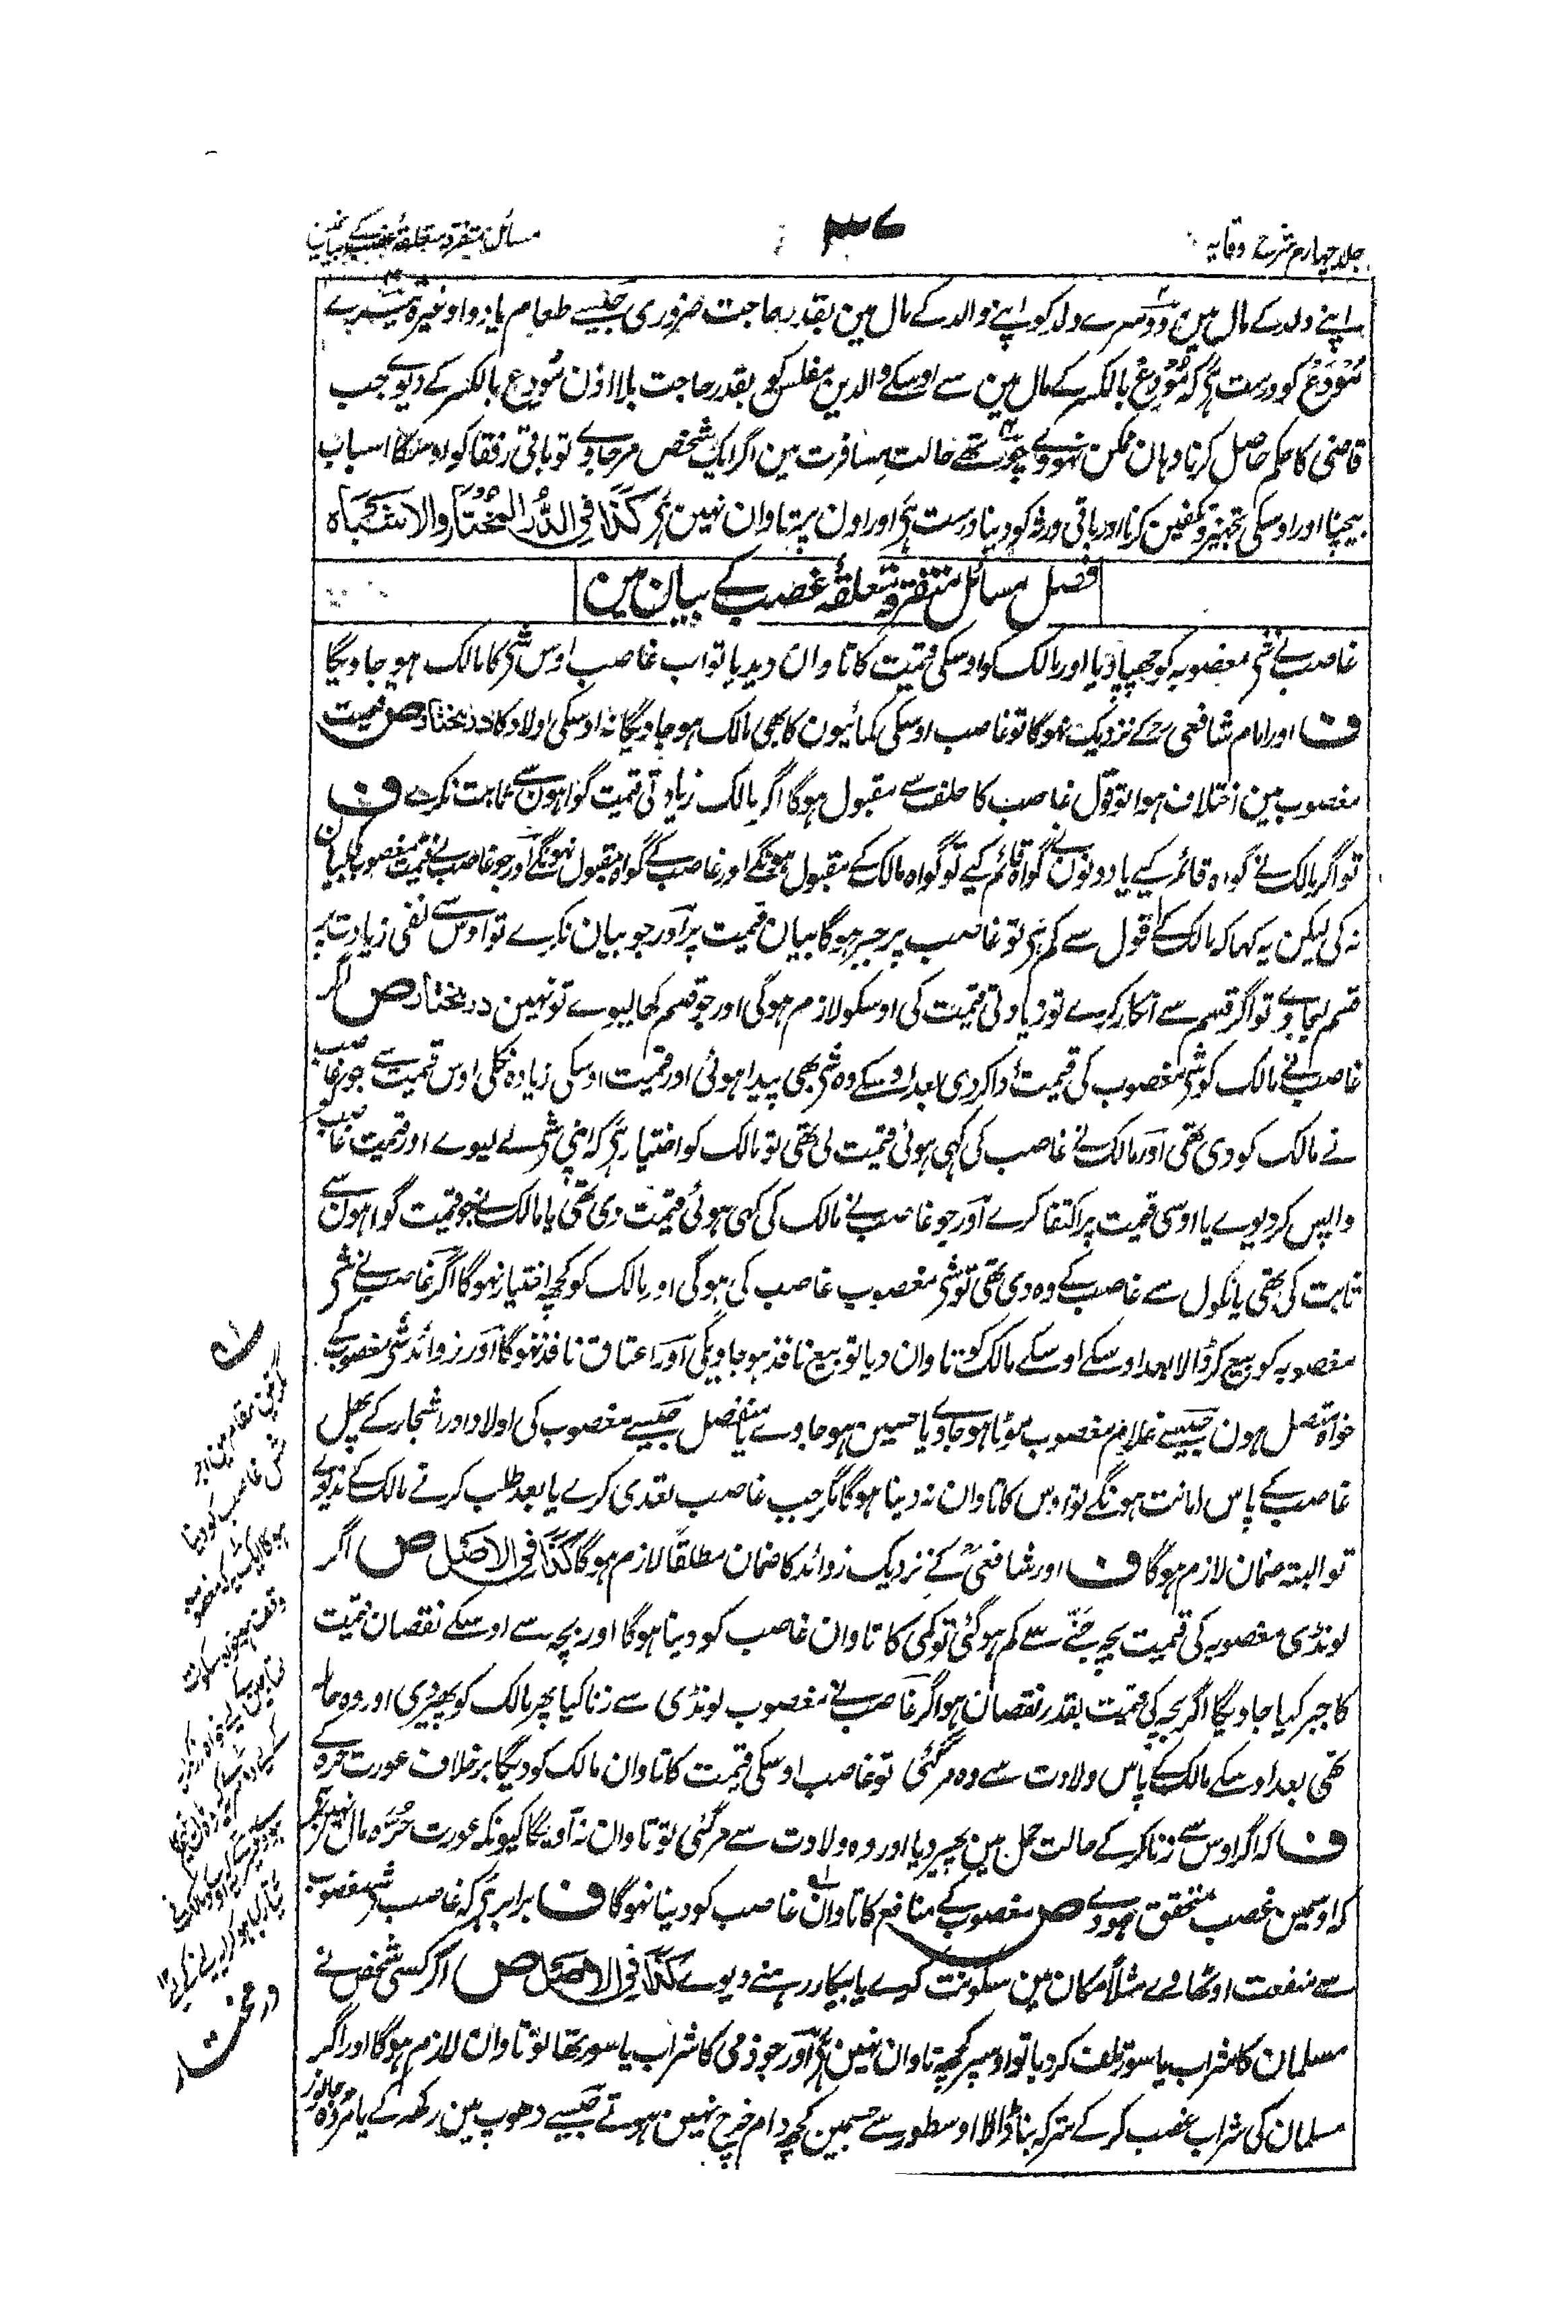 جلد چہارم شرح وقایہ
۳۷
مسائل متفرقہ متعلقہ غصب کے بیان مین
اپنے ولد کے مال مین دوسرے ولد کو اپنے والد کے مال مین بقدر حاجت ضروری جیسے طعام یا دوا وغیرہ تیسرے
مُودَع کو درست ہی کہ مُودِع بالکسر کے مال مین سے اوسکے والدین مفلس کو بقدر حاجت بلا اذن مُودِع بالکسر کے دیوے جب
قاضی کا حکم حاصل کرنا وہان ممکن نہووے چوتھے حالت مسافرت مین اگر ایک شخص مر جاوے تو باقی رفقا کو اوسکا اسباب
بیچنا اور اوسکی تجہیز و تکفین کرنا اور باقی ورثہ کو دینا درست ہی اور اون پر تاوان نہین ہی کذا فی الدر المختار والاشباہ
فصل مسائل متفرقہ متعلقہ غصب کے بیان مین
غاصب نے شی مغصوبہ کو چھپا دیا اور مالک کو اوسکی قیمت کا تاوان دیدیا تو اب غاصب اوس شی کا مالک ہو جاویگا
ف اور امام شافعی رح کے نزدیک نہوگا تو غاصب اوسکی کمائیون کا بھی مالک ہو جاویگا نہ اوسکی اولاد کا در مختار ص قیمت
مغصوب مین اختلاف ہوا تو قول غاصب کا حلف سے مقبول ہوگا اگر مالک زیادتی قیمت گواہون سے ثابت نکرے ف
تو اگر مالک نے گواہ قائم کیے یا دونون نے گواہ قائم کیے تو گواہ مالک کے مقبول ہونگے اور غاصب کے گواہ مقبول نہونگے اور جو غاصب نے قیمت مغصوب کی بیان
نہ کی لیکن یہ کہا کہ مالک کے قول سے کم ہی تو غاصب پر جبر ہوگا بیان قیمت پر اور جو بیان نکرے تو اوس سے نفی زیادت پر
قسم لیجاوے تو اگر قسم سے انکار کرے تو زیادتی قیمت کی اوسکو لازم ہوگی اور جو قسم کھا لیوے تو نہین در مختار ص اگر
غاصب نے مالک کو شی مغصوب کی قیمت ادا کر دی بعد اوسکے وہ شی بھی پیدا ہوئی اور قیمت اوسکی زیادہ نکلی اوس قیمت سے جو غاصب
نے مالک کو دی تھی اور مالک نے غاصب کی کہی ہوئی قیمت لی تھی تو مالک کو اختیار ہی کہ اپنی شی لے لیوے اور قیمت غاصب
واپس کر دیوے یا اوسی قیمت پر اکتفا کرے اور جو غاصب نے مالک کی کہی ہوئی قیمت دی تھی یا مالک نے جو قیمت گواہون سے
ثابت کی تھی یا نکول سے غاصب کے وہ دی تھی تو شی مغصوب غاصب کی ہوگی اور مالک کو کچھ اختیار نہوگا اگر غاصب نے شی
مغصوبہ کو بیع کر ڈالا بعد اوسکے اوسکے مالک کو تاوان دیا تو بیع نافذ ہو جاویگی اور اعتاق نافذ نہوگا اور زوائد شی مغصوب کے
خواہ متصل ہون جیسے غلام مغصوب موٹا ہو جاوے یا حسین ہو جاوے یا منفصل جیسے مغصوب کی اولاد اور اشجار کے پھل
غاصب کے پاس امانت ہونگے تو اوس کا تاوان نہ دینا ہوگا مگر جب غاصب تعدی کرے یا بعد طلب کرنے مالک کے ندیوے
تو البتہ ضمان لازم ہوگا ف اور شافعی رح کے نزدیک زوائد کا ضمان مطلقًا لازم ہوگا کذا فی الاصل ص اگر
لونڈی مغصوبہ کی قیمت بچہ جننے سے کم ہو گئی تو کمی کا تاوان غاصب کو دینا ہوگا اور بچہ سے اوسکے نقصان قیمت
کا جبر کیا جاویگا اگر بچہ کی قیمت بقدر نقصان ہو اگر غاصب نے مغصوب لونڈی سے زنا کیا پھر مالک کو پھیر دی اور وہ حاملہ
تھی بعد اوسکے مالک کے پاس ولادت سے وہ مر گئی تو غاصب اوسکی قیمت کا تاوان مالک کو دیگا برخلاف عورت حرہ کے
ف کہ اگر اوس سے زنا کر کے حالت حمل مین پھیر دیا اور وہ ولادت سے مر گئی تو تاوان نہ آویگا کیونکہ عورت حُرَّہ مال نہین ہی
کہ اوسمین غصب متحقق ہووے ص مغصوب کے منافع کا تاوان غاصب کو دینا نہوگا ف برابر ہی کہ غاصب شی مغصوب
سے منفعت اوٹھاوے مثلًا مکان مین سکونت کرے یا بیکار رہنے دیوے کذا فی الاصل ص اگر کسی شخص نے
مسلمان کا شراب یا سور تلف کر دیا تو اوسپر کچھ تاوان نہین ہی اور جو ذمی کا شراب یا سور تھا تو تاوان لازم ہوگا اور اگر
مسلمان کی شراب غصب کر کے سرکہ بنا ڈالا اوسطور سے جسمین کچھ دام خرچ نہین ہوتے جیسے دھوپ مین رکھہ کے یا مردہ جانور
ف
مگر تین مقام مین اجر
مثل غاصب کو دینا
ہوگا ایک یہ کہ مغصوب
وقف ہو
در مختار